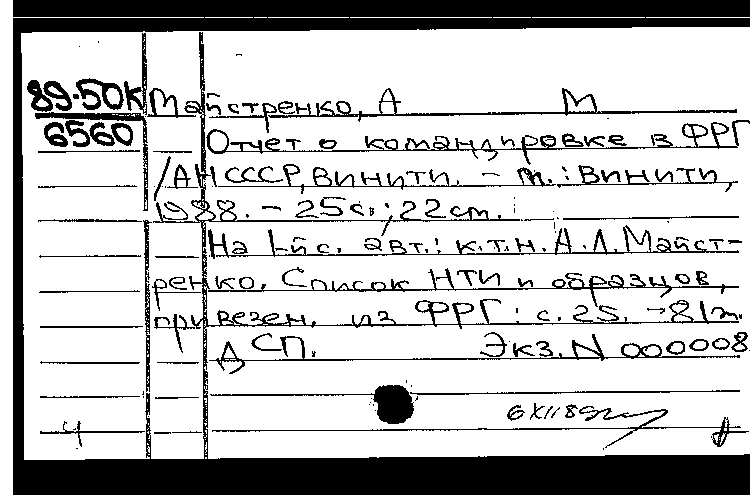 89-50К Майстренко, А М
6560
Отчет о командировке в ФРГ
/АН СССР, ВИНИТИ. – М.: ВИНИТИ,
1988. – 25с.; 22см.
На 1-й с. авт.: к.т.н. А.Л. Майст-
ренко. Список НТИ и образцов,
привезен. из ФРГ: с. 25. –
ДСП. Экз. N 000008
6 XII 89
ч